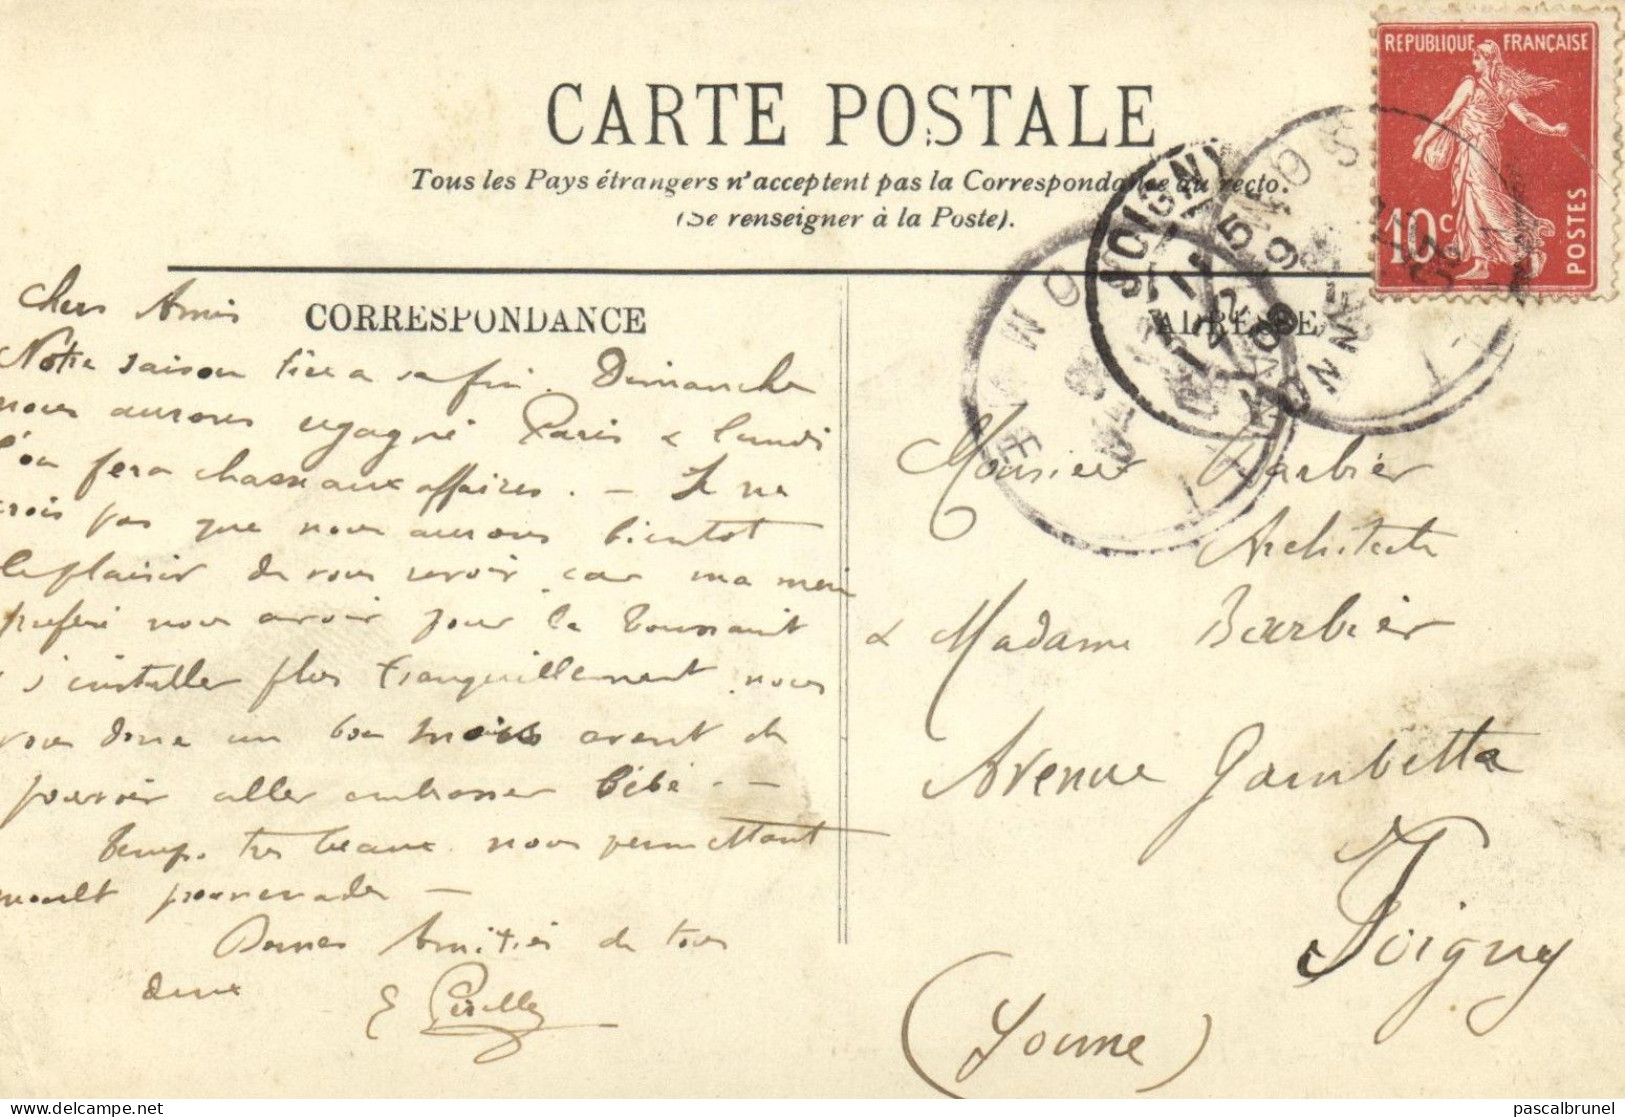 CARTE POSTALE
Tous les Pays étrangers n'acceptent pas la Correspondance au recto.
(Se renseigner à la Poste).
REPUBLIQUE FRANÇAISE
10c
POSTES
JOIGNY
YONNE
CORRESPONDANCE
ADRESSE
Chers Amis
Notre saison tire a sa fin. Dimanche
nous aurons regagné Paris & lundi
l'on fera chasse aux affaires. — Je ne
crois pas que nous aurons bientot
le plaisir de vous revoir car ma mere
prefere nous avoir pour la Toussaint
s'installer plus tranquillement nous
vous donc un bon mois avant de
pouvoir aller embrasser bébé. —
Temps tres beau nous permettant
moult promenade —
Bonnes Amitiés de tous
deux
Monsieur Barbier
Architecte
& Madame Barbier
Avenue Gambetta
Joigny
(Yonne)
delcampe.net
pascalbrunel